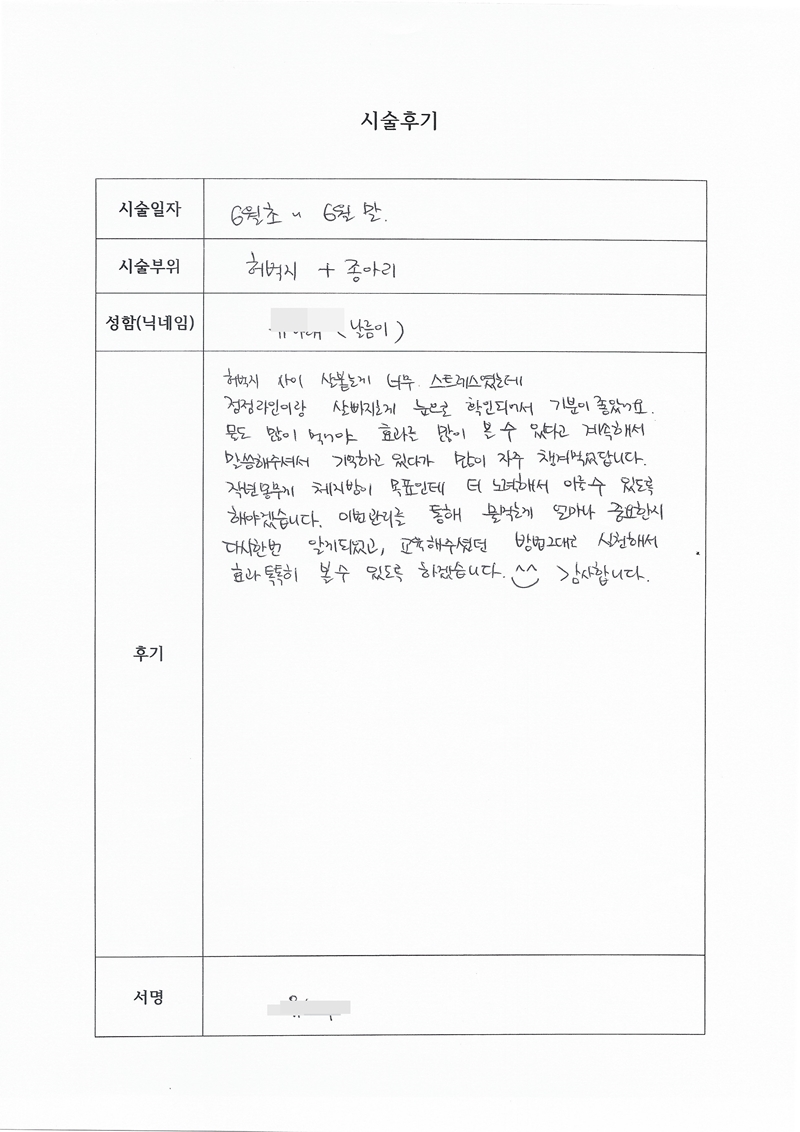 시술후기
시술일자 6월초 ~ 6월 말.
시술부위 허벅지 + 종아리
성함(닉네임) (날름이)
허벅지 사이 살붙는게 너무 스트레스였는데
점점라인이랑 살빠지는게 눈으로 확인되어서 기분이 좋았어요.
물도 많이 먹어야 효과를 많이 볼 수 있다고 계속해서
말씀해주셔서 기억하고 있다가 많이 자주 챙겨먹었답니다.
작년몸무게 체지방이 목표인데 더 노력해서 이룰수 있도록
해야겠습니다. 이번관리를 통해 물먹는게 얼마나 중요한지
다시한번 알게되었고, 교육해주셨던 방법그대로 실천해서
효과톡톡히 볼수 있도록 하겠습니다. ^^ 감사합니다.
후기
서명